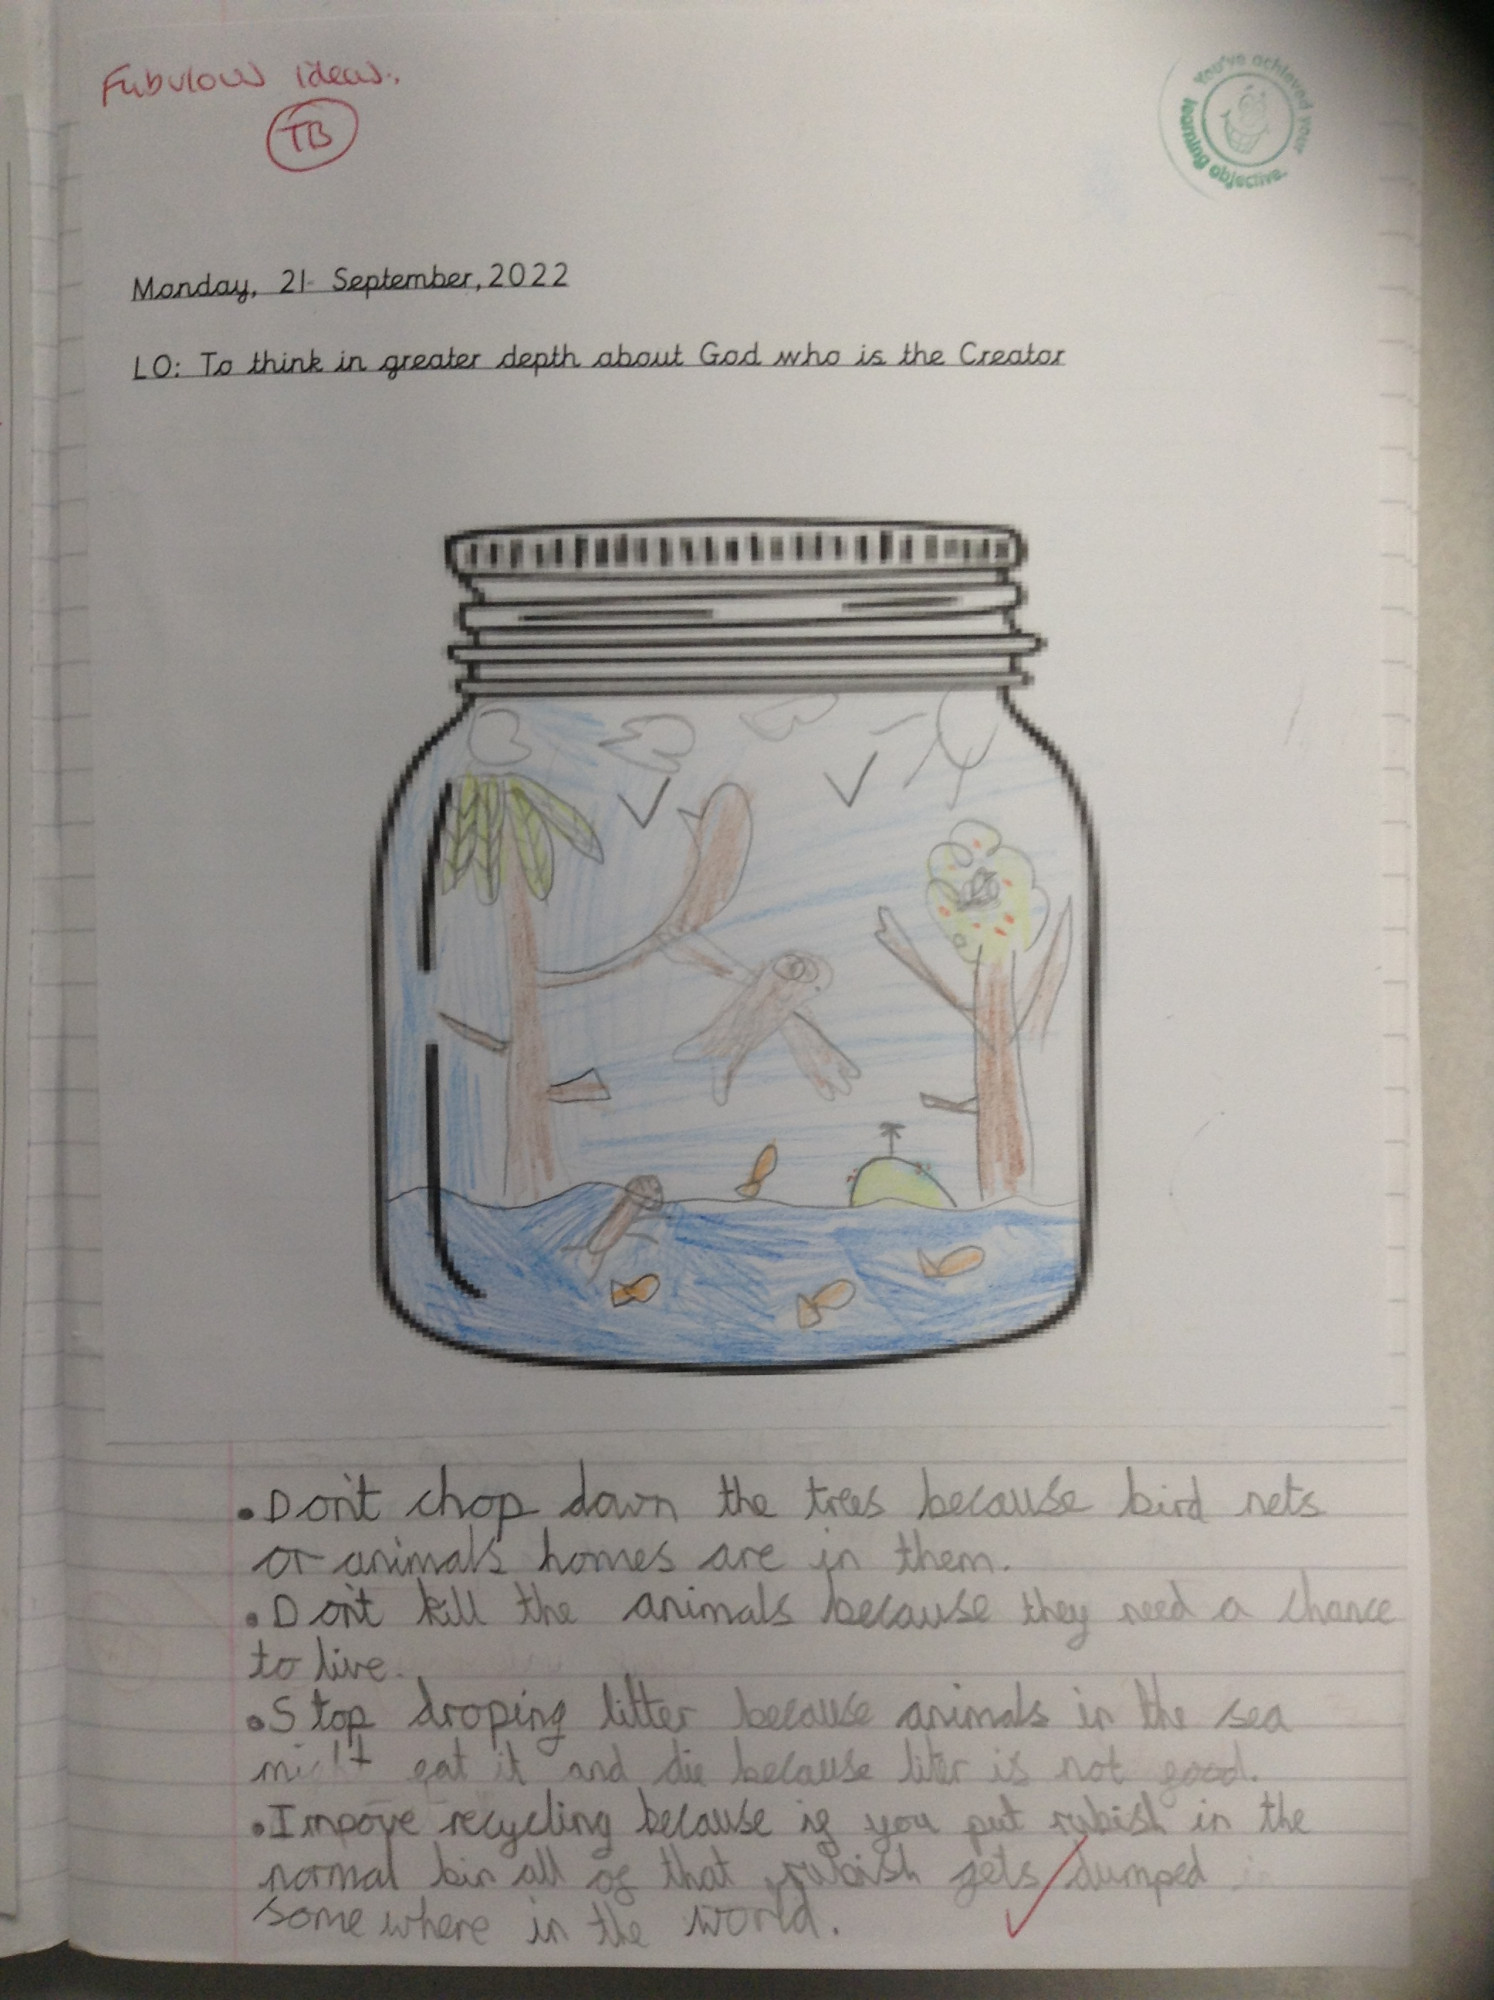 Fabulous ideas.
TB
You've achieved your
learning objective.
Monday, 21 September, 2022
LO: To think in greater depth about God who is the Creator
• Don't chop down the trees because bird nets
or animals homes are in them.
• Don't kill the animals because they need a chance
to live.
• Stop droping litter because animals in the sea
might eat it and die because liter is not good.
• Impove recycling because if you put rubish in the
normal bin all of that rubish gets dumped
some where in the world.